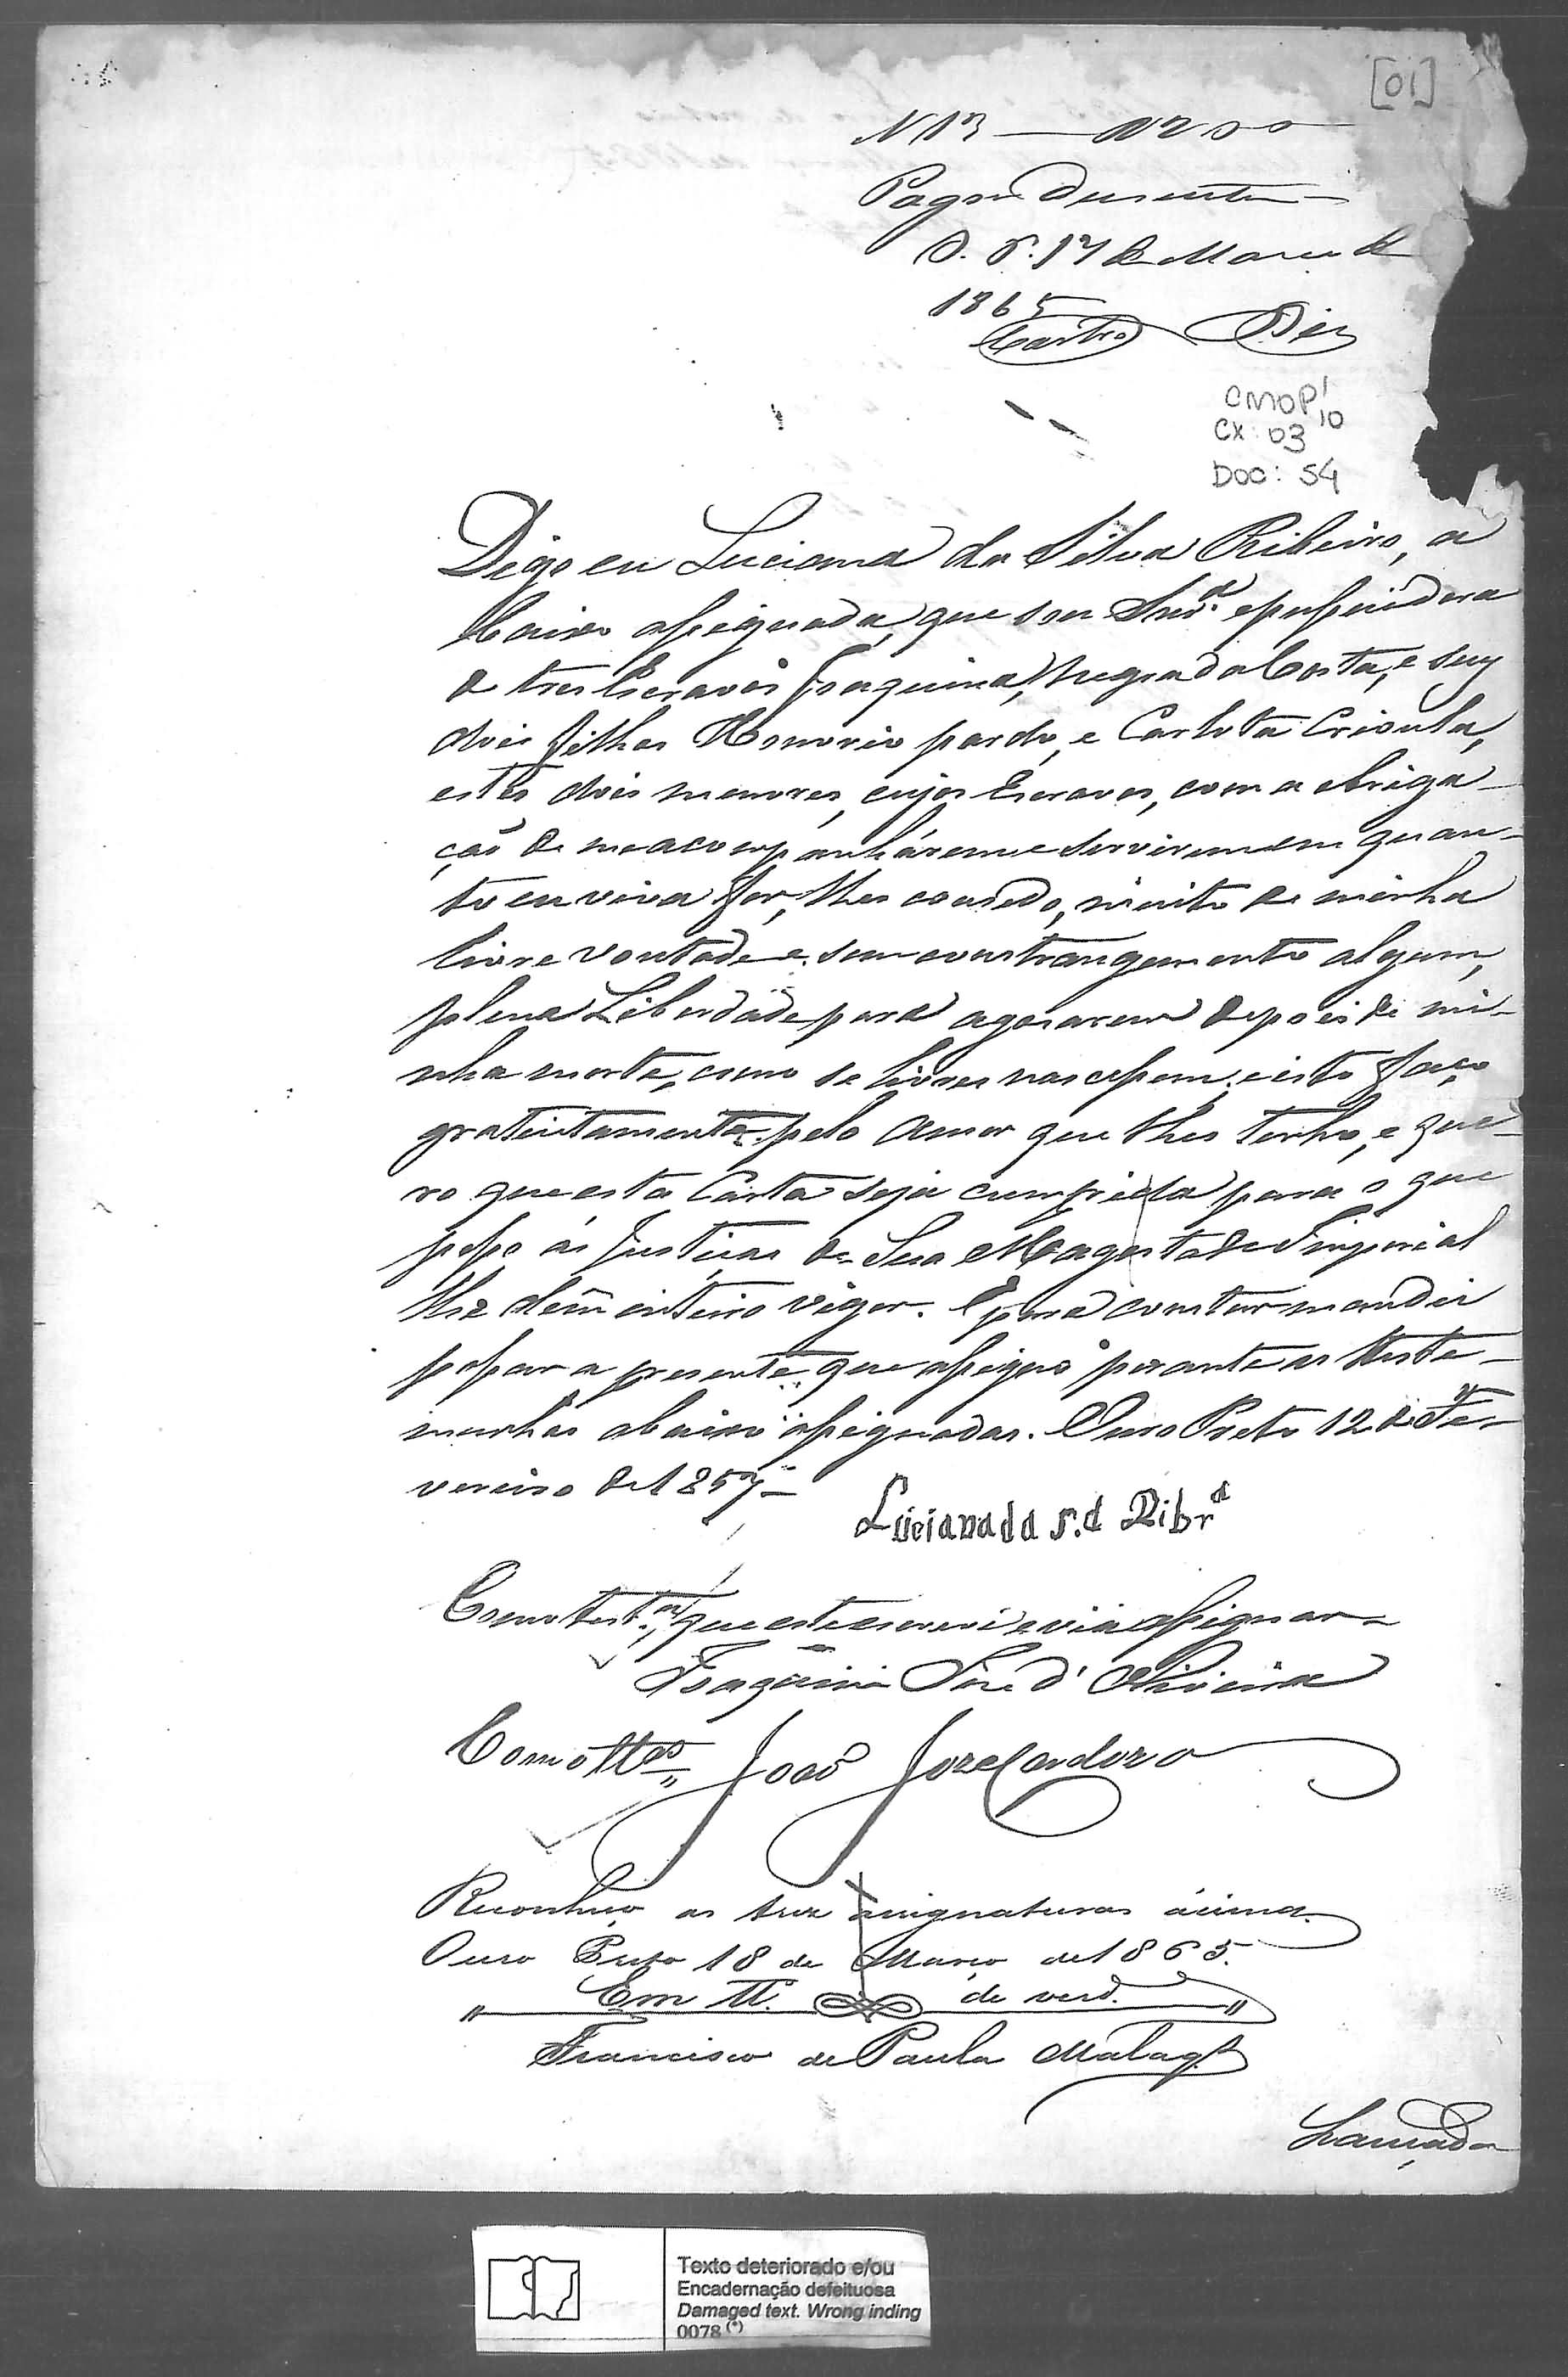 [01]
N 13 — 1200
Pagou Dusentos
O. P. 17 de Março de
1865
Castro Dias
CMOP 1/10
CX: 03
DOC: 54
Digo eu Luciana da Silva Ribeiro, a
baixo assignada, que sou Snr.ª e possuidora
de tres Escravos Joaquina, negra da Costa, e seus
dois filhos Honorio pardo, e Carlota Crioula,
estes dois menores, cujos Escravos, com a obriga-
ção de me acompanhárem e servirem em quan-
to eu viva for, lhes concedo, muito de minha
livre vontade e sem constrangemento algum,
plena Liberdade para agosarem depois de mi-
nha morte, como se livres nascessem, e isto faço
gratuitamente pelo amor que lhes tenho, e que-
ro que esta Carta seja cumprida para o que
posso ás Justiças de Sua Magestade Imperial
lhe dêm inteiro vigor. E para constar mandei
passar a presente que assigno perante as teste-
munhas abaixo assignadas. Ouro Preto 12 de Fe-
vereiro de 1857
Luciana da S.ª Ribr.ª
Como test.ª que este escrevi e vi assignar
Joaquim José d' Oliveira
Como tt.ª João Joze Cardozo
Reconheço as tres assignaturas ácima.
Ouro Preto 18 de Março de 1865.
Em tt.º de verd.
Francisco de Paula Malaq.
Lançada
Texto deteriorado e/ou
Encadernação defeituosa
Damaged text. Wrong inding
0078 (*)